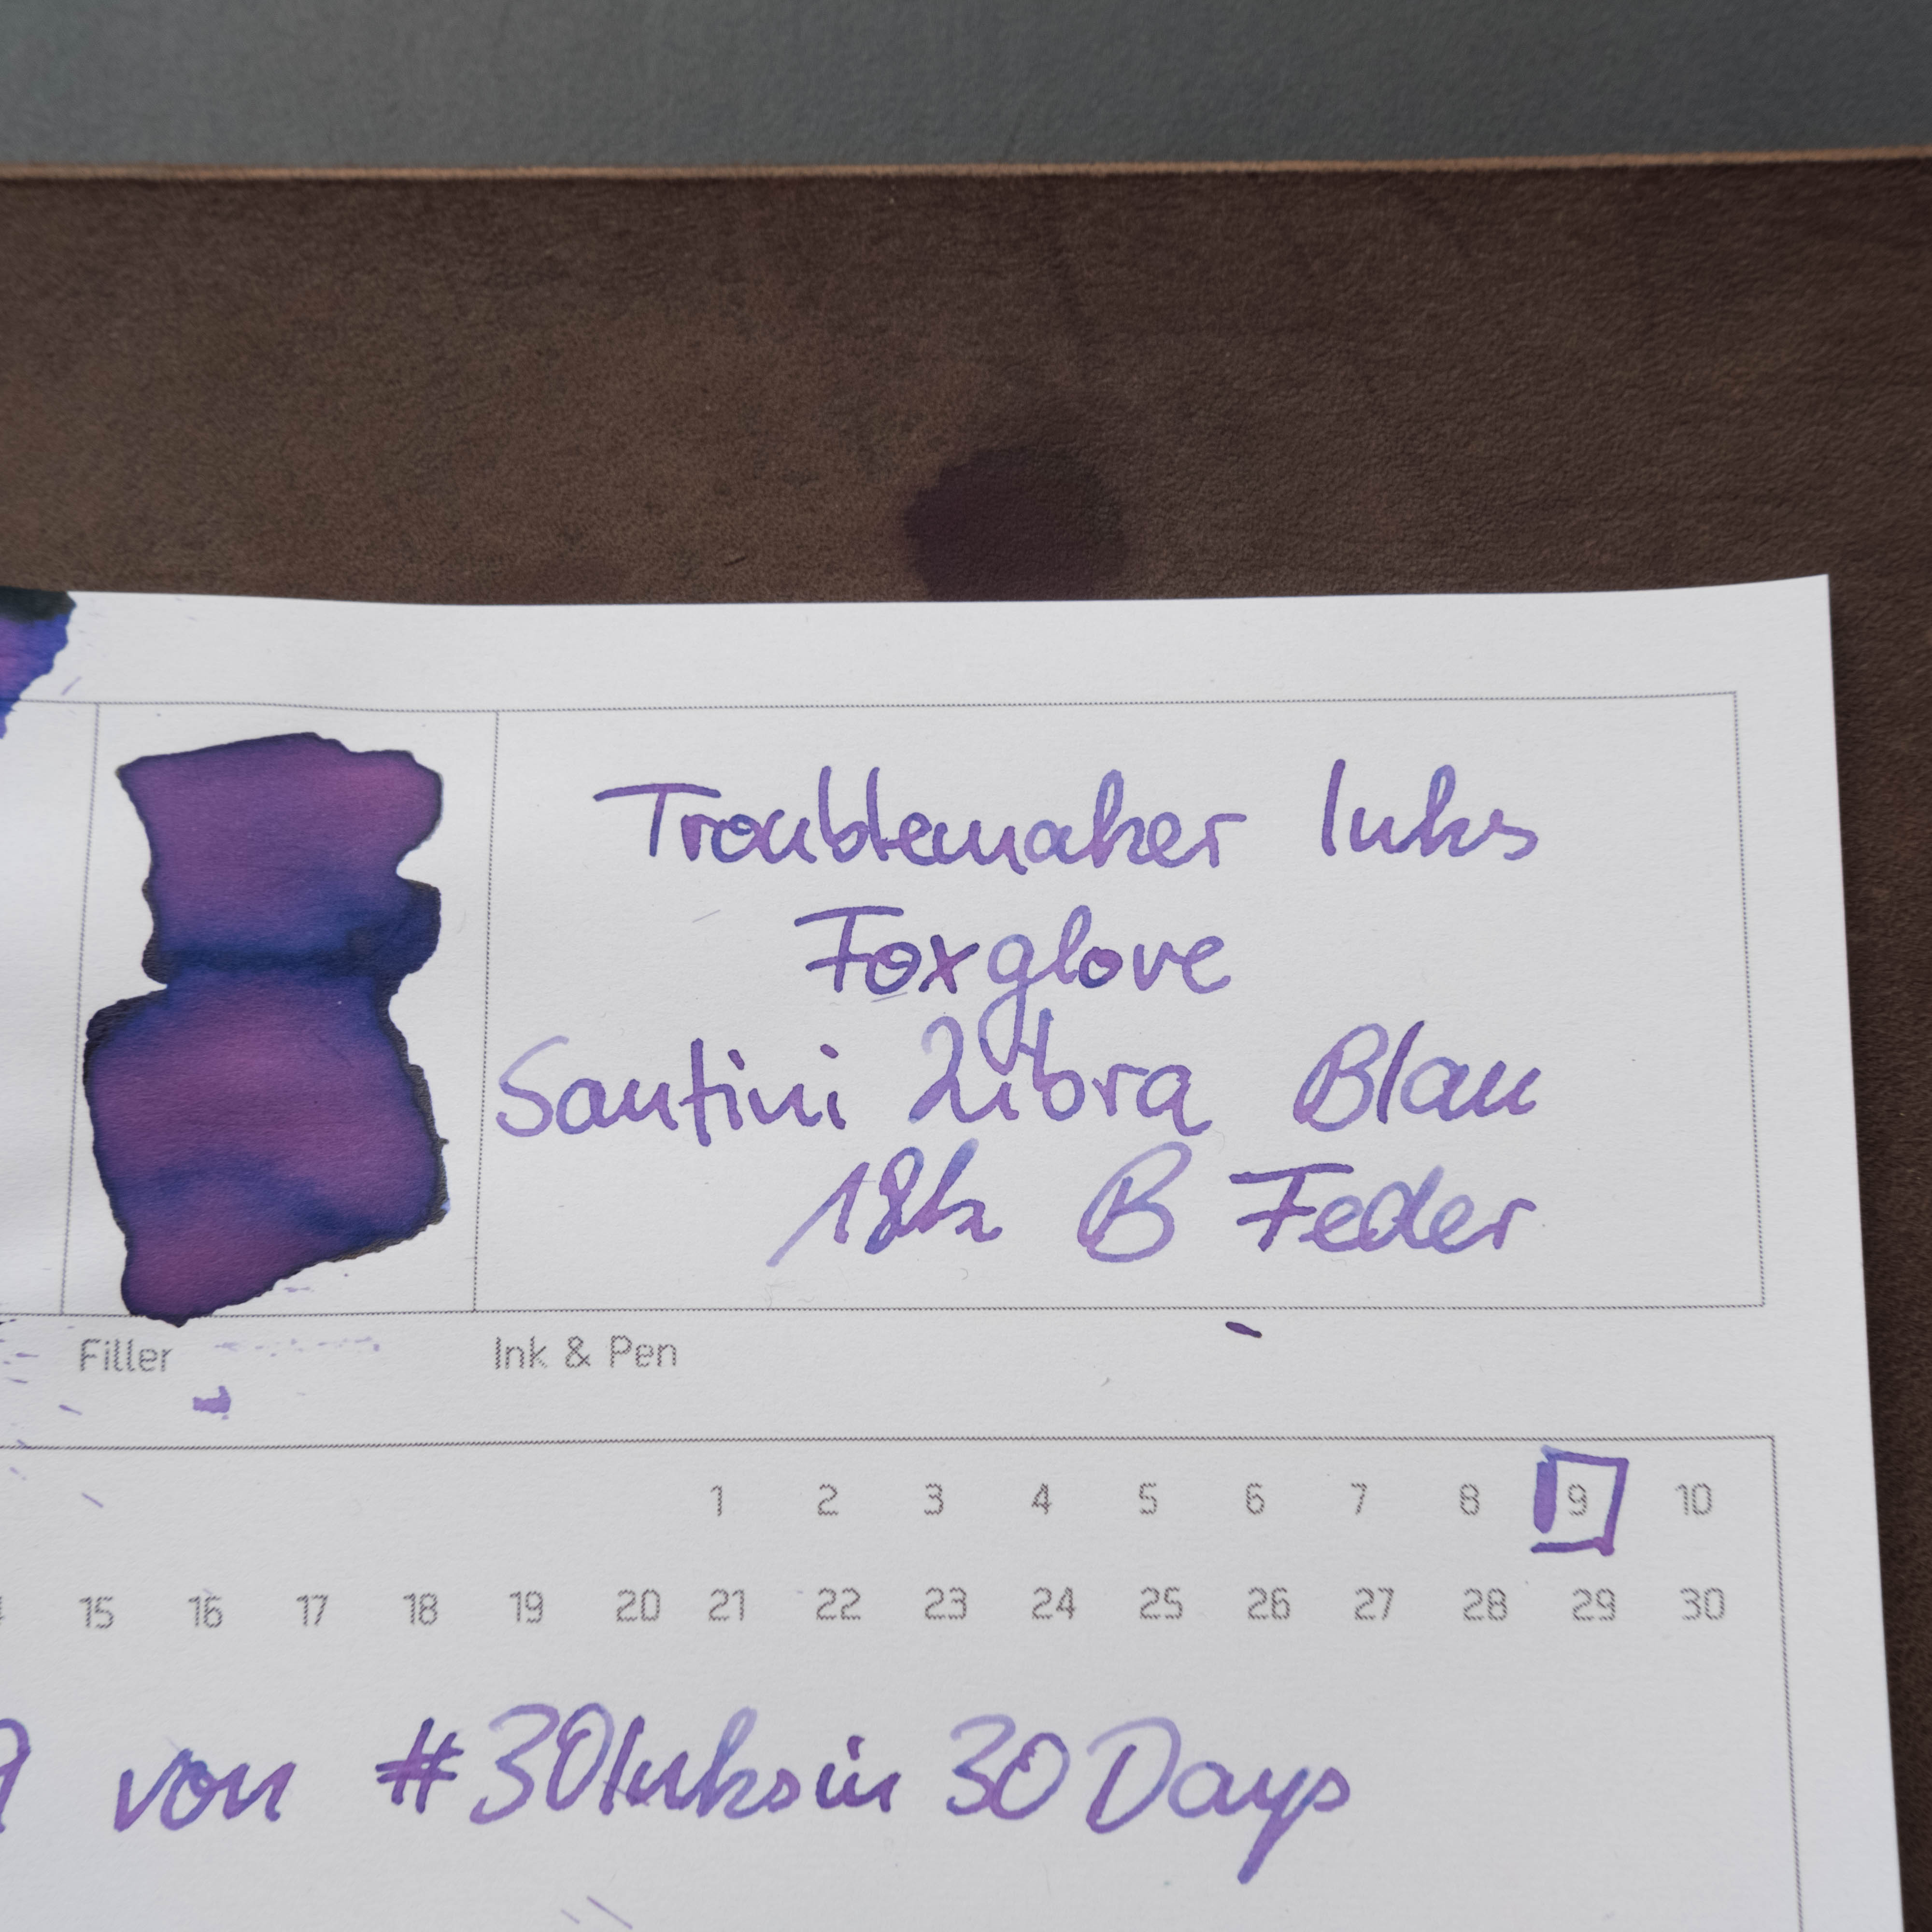 Troublemaker Inks
Foxglove
Santini Libra Blau
18k B Feder
Filler
Ink & Pen
1 2 3 4 5 6 7 8 9 10
15 16 17 18 19 20 21 22 23 24 25 26 27 28 29 30
9 von #30Inksin30Days